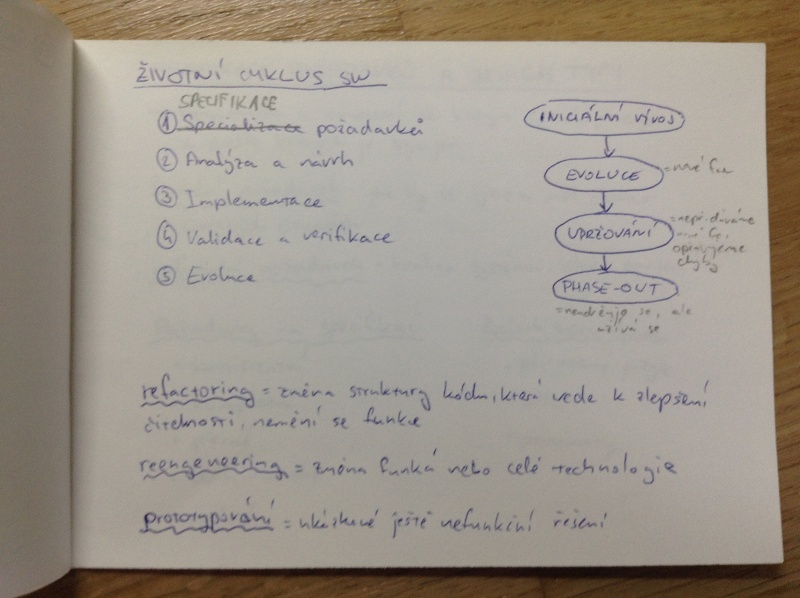 ŽIVOTNÍ CYKLUS SW
SPECIFIKACE
① Specializace požadavků
② Analýza a návrh
③ Implementace
④ Validace a verifikace
⑤ Evoluce
INICIÁLNÍ VÝVOJ
EVOLUCE
= nové fce
UDRŽOVÁNÍ
= nepřidáváme
nové fce,
opravujeme
chyby
PHASE-OUT
= neudržuje se, ale
užívá se
refactoring = změna struktury kódu, která vede k zlepšení
čitelnosti, nemění se funkce
reengeneering = změna funkcí nebo celé technologie
prototypování = ukázkové ještě nefunkční řešení